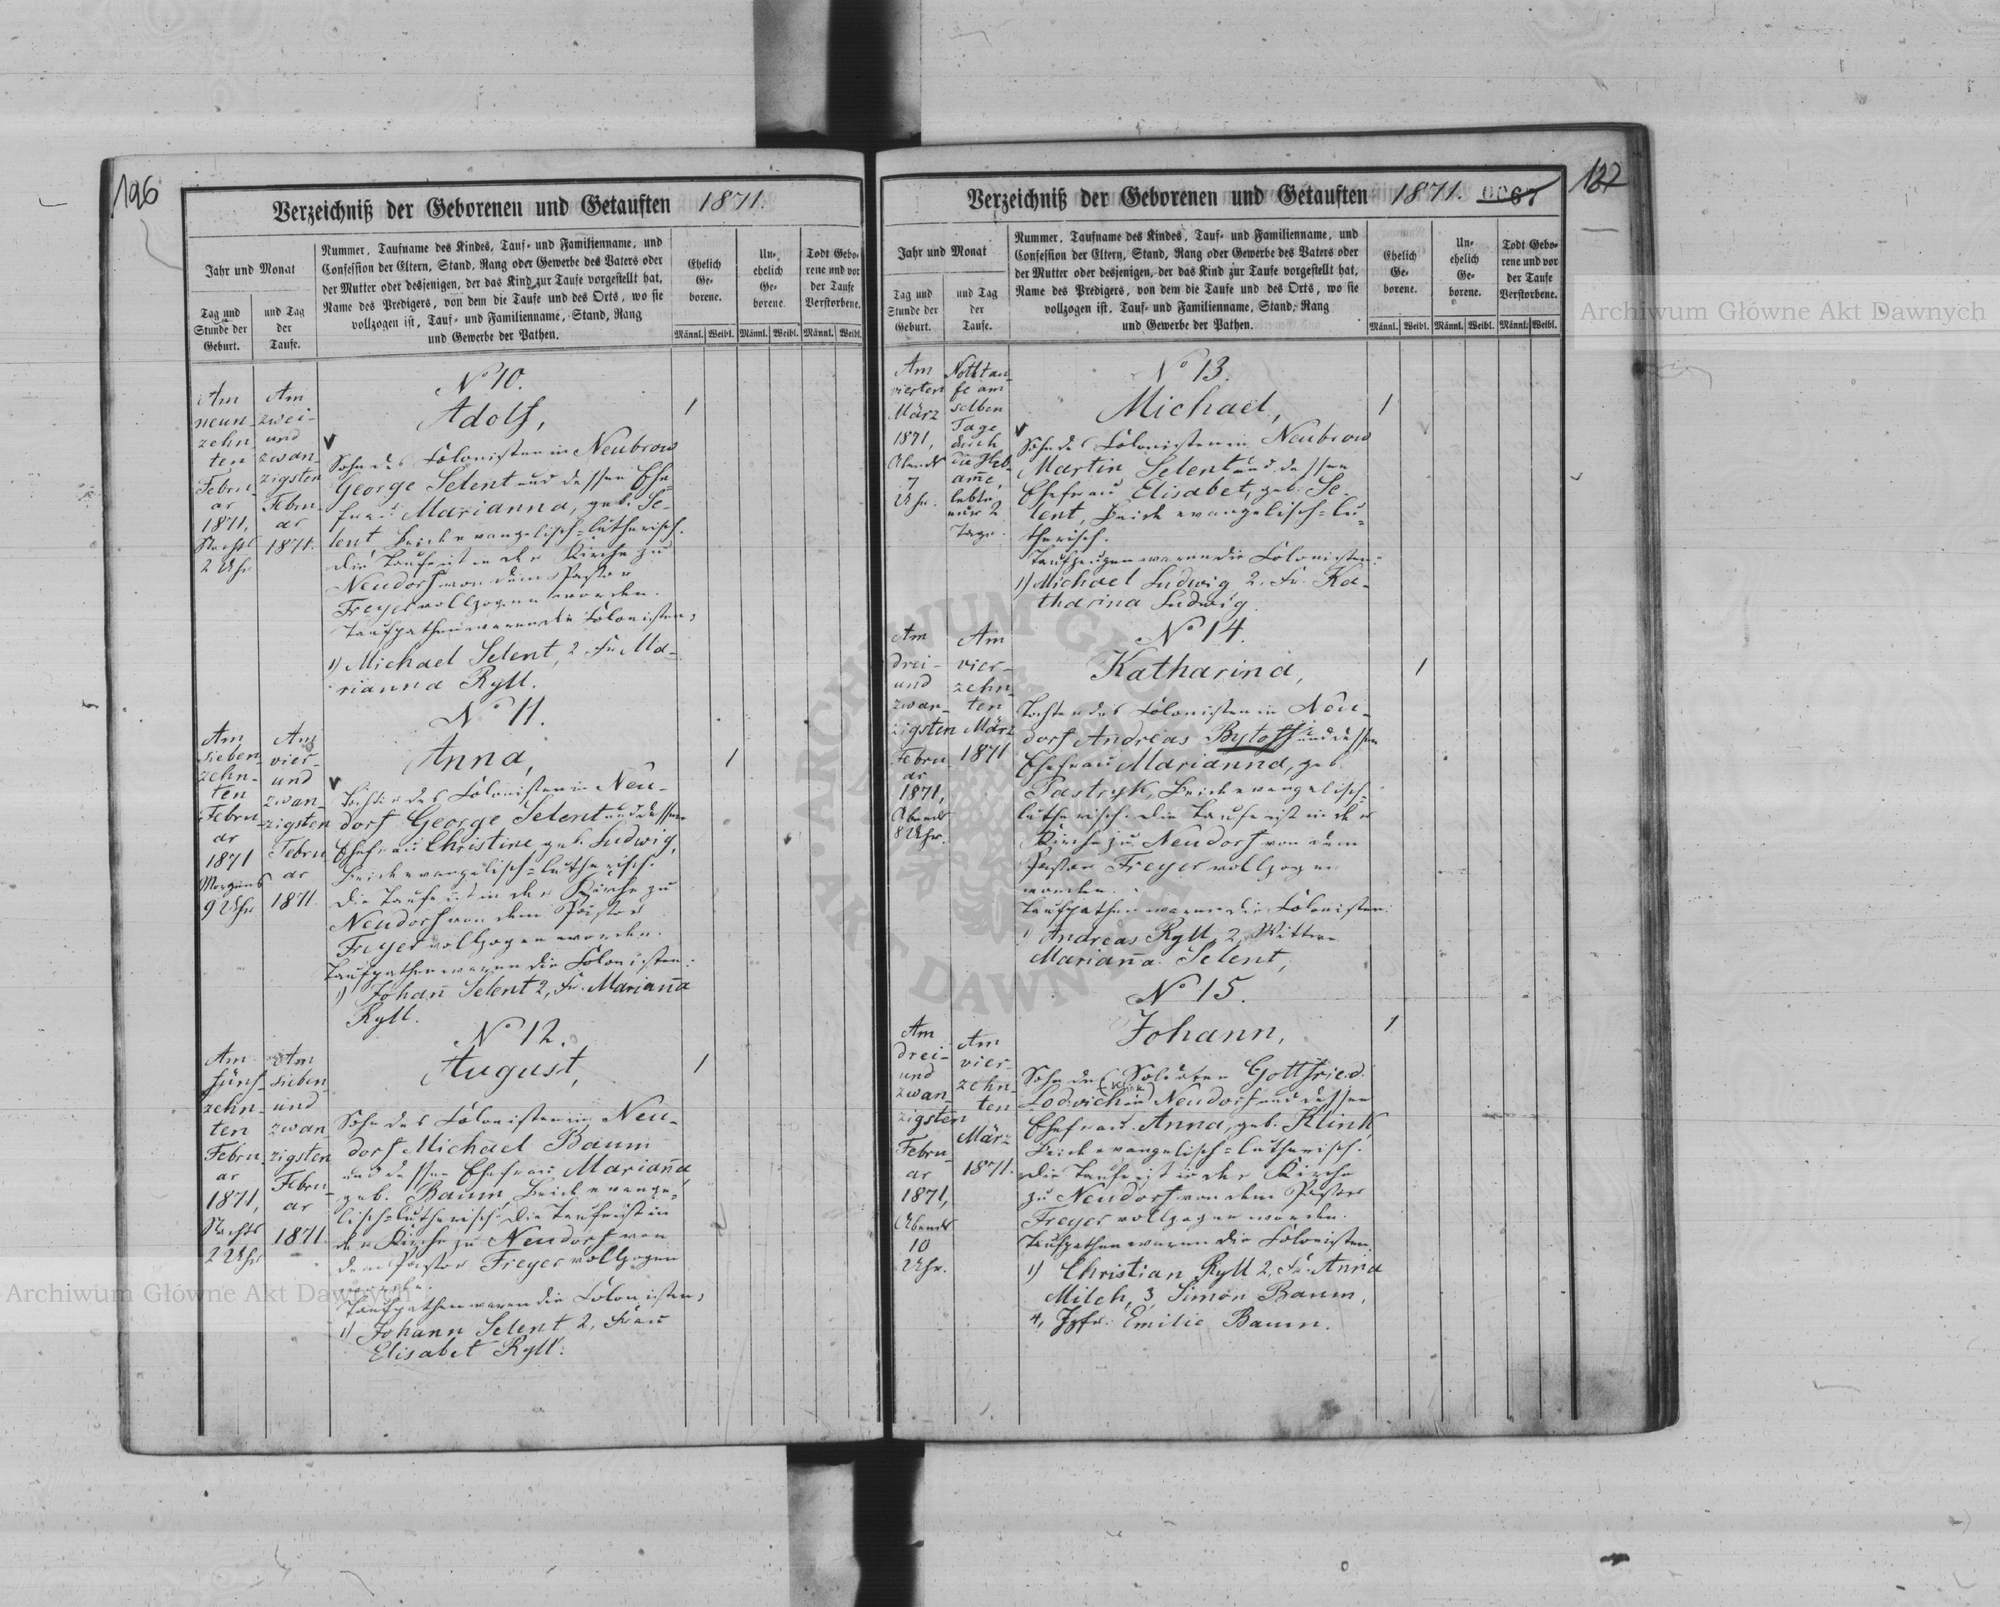 196
Verzeichniß der Geborenen und Getauften 1871.
Jahr und Monat
Tag und
Stunde der
Geburt.
und Tag
der
Taufe.
Nummer, Taufname des Kindes, Tauf- und Familienname, und
Confession der Eltern, Stand, Rang oder Gewerbe des Vaters oder
der Mutter oder desjenigen, der das Kind zur Taufe vorgestellt hat,
Name des Predigers, von dem die Taufe und des Orts, wo sie
vollzogen ist, Tauf- und Familienname, Stand, Rang
und Gewerbe der Pathen.
Ehelich
Ge-
borene.
Un-
ehelich
Ge-
borene.
Todt Gebo-
rene und vor
der Taufe
Verstorbene.
Männl. Weibl. Männl. Weibl. Männl. Weibl.
Am
neun-
zehn
ten
Febru-
ar
1871,
Nachts
2 Uhr
Am
zwei-
und
zwan-
zigsten
Febru-
ar
1871.
No 10.
Adolf,
1
Sohn des Colonisten in Neubrow
George Selent und dessen Ehe-
frau Marianna, geb. Se-
lent beide evangelisch=lutherisch.
Die Taufe ist in der Kirche zu
Neudorf von dem Pastor
Freyer vollzogen worden.
Taufpathen waren die Colonisten:
1) Michael Selent, 2. Fr. Ma-
rianna Ryll.
Am
sieben-
zehn-
ten
Febru-
ar
1871
Morgens
9 Uhr
Am
vier-
und
zwan-
zigsten
Febru
ar
1871.
No 11.
Anna,
1
Tochter des Colonisten in Neu-
dorf George Selent und dessen
Ehefrau Christine geb. Ludwig,
beide evangelisch=lutherisch.
Die Taufe ist in der Kirche zu
Neudorf von dem Pastor
Freyer vollzogen worden.
Taufpathen waren die Colonisten:
1) Johan̄ Selent 2, Fr. Marian̄a
Ryll.
Am
fünf-
zehn-
ten
Febru-
ar
1871,
Nachts
2 Uhr
Am
sieben-
und
zwan-
zigsten
Febru-
ar
1871.
No 12.
August,
1
Sohn des Colonisten in Neu-
dorf Michael Baum
und dessen Ehefrau Marian̄a
geb. Baum, beide evange-
lisch=lutherisch. Die Taufe ist in
der Kirche zu Neudorf von
dem Pastor Freyer vollzogen
worden.
Taufpathen waren die Colonisten:
1) Johann Selent 2, Frau
Elisabet Ryll.
Verzeichniß der Geborenen und Getauften 1871.
127
Jahr und Monat
Tag und
Stunde der
Geburt.
und Tag
der
Taufe.
Nummer, Taufname des Kindes, Tauf- und Familienname, und
Confession der Eltern, Stand, Rang oder Gewerbe des Vaters oder
der Mutter oder desjenigen, der das Kind zur Taufe vorgestellt hat,
Name des Predigers, von dem die Taufe und des Orts, wo sie
vollzogen ist, Tauf- und Familienname, Stand, Rang
und Gewerbe der Pathen.
Ehelich
Ge-
borene.
Un-
ehelich
Ge-
borene.
Todt Gebo-
rene und vor
der Taufe
Verstorbene.
Männl. Weibl. Männl. Weibl. Männl. Weibl.
Am
vierten
März
1871,
Abends
7
Uhr.
Nothtau-
fe am
selben
Tage
durch
die Heb-
am̄e,
lebte
nur 2
Tage.
No 13.
Michael,
1
Sohn des Colonisten in Neubrow
Martin Selent und dessen
Ehefrau Elisabet, geb. Se-
lent, beide evangelisch=lu-
therisch.
Taufzeugen waren die Colonisten:
1) Michael Ludwig 2. Fr. Ka-
tharina Ludwig.
Am
drei-
und
zwan-
zigsten
Febru
ar
1871,
Abends
8 Uhr.
Am
vier-
zehn-
ten
März
1871
No 14.
Katharina,
1
Tochter des Colonisten in Neu-
dorf Andreas Bytoff und dessen
Ehefrau Marianna, geb.
Pastryk, beide evangelisch=
lutherisch. Die Taufe ist in der
Kirche zu Neudorf von dem
Pastor Freyer vollzogen
worden.
Taufpathen waren die Colonisten:
1) Andreas Ryll, 2, Wittwe
Marian̄a Selent,
Am
drei-
und
zwan-
zigsten
Febru-
ar
1871,
Abends
10
Uhr.
Am
vier-
zehn-
ten
März
1871.
No 15.
Johann,
1
Sohn des Soldaten Gottfried
Lodwich in Neudorf und dessen
Ehefrau Anna, geb. Klink
beide evangelisch=lutherisch.
Die Taufe ist in der Kirche
zu Neudorf von dem Pastor
Freyer vollzogen worden.
Taufpathen waren die Colonisten
1) Christian Ryll 2, Fr. Anna
Milch, 3, Simon Baum,
4, Jgfr. Emilie Baum.
Archiwum Główne Akt Dawnych
Archiwum Główne Akt Dawnych
ARCHIWUM GŁÓWNE AKT DAWNYCH